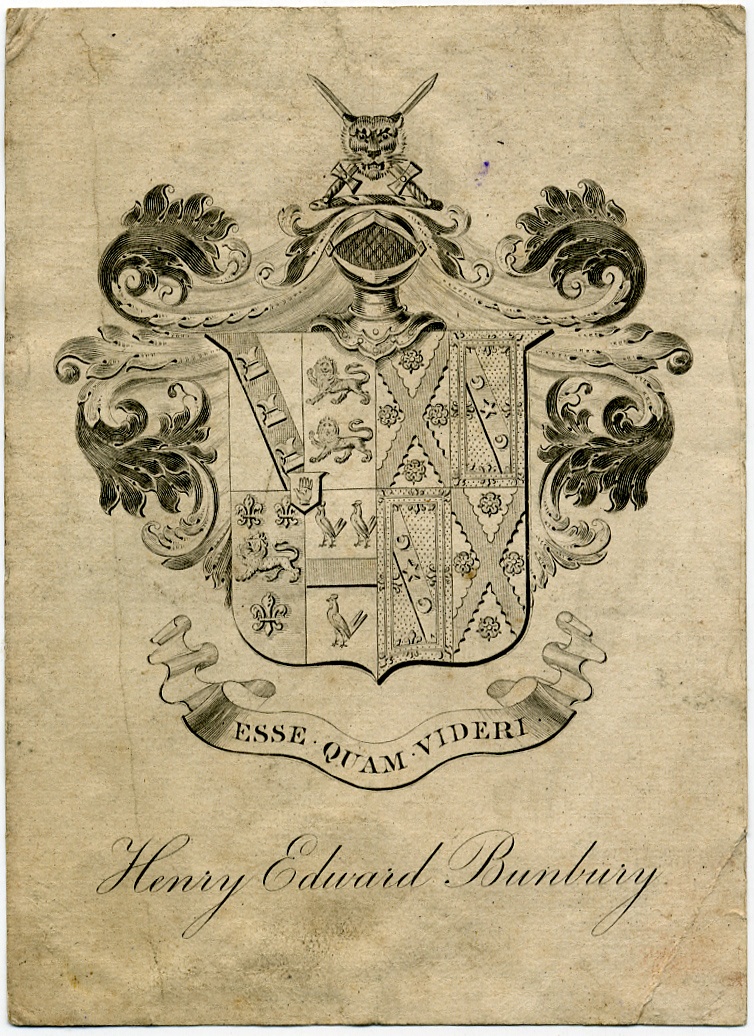 ESSE · QUAM · VIDERI
Henry Edward Bunbury